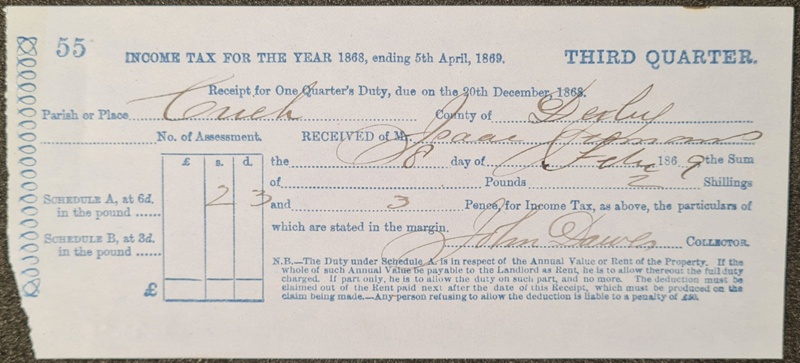 55
INCOME TAX FOR THE YEAR 1868, ending 5th April, 1869. THIRD QUARTER.
Receipt for One Quarter's Duty, due on the 20th December, 1868.
Parish or Place Crich County of Derby
No. of Assessment. RECEIVED of Mr. Isaac
£ s. d. the 8 day of Feby 1869 the Sum
of Pounds 2 Shillings
SCHEDULE A, at 6d. in the pound 2 3 and 3 Pence, for Income Tax, as above, the particulars of
which are stated in the margin.
SCHEDULE B, at 3d. in the pound John Dawes COLLECTOR.
£
N.B.—The Duty under Schedule A. is in respect of the Annual Value or Rent of the Property. If the
whole of such Annual Value be payable to the Landlord as Rent, he is to allow thereout the full duty
charged. If part only, he is to allow the duty on such part, and no more. The deduction must be
claimed out of the Rent paid next after the date of this Receipt, which must be produced on the
claim being made.—Any person refusing to allow the deduction is liable to a penalty of £50.